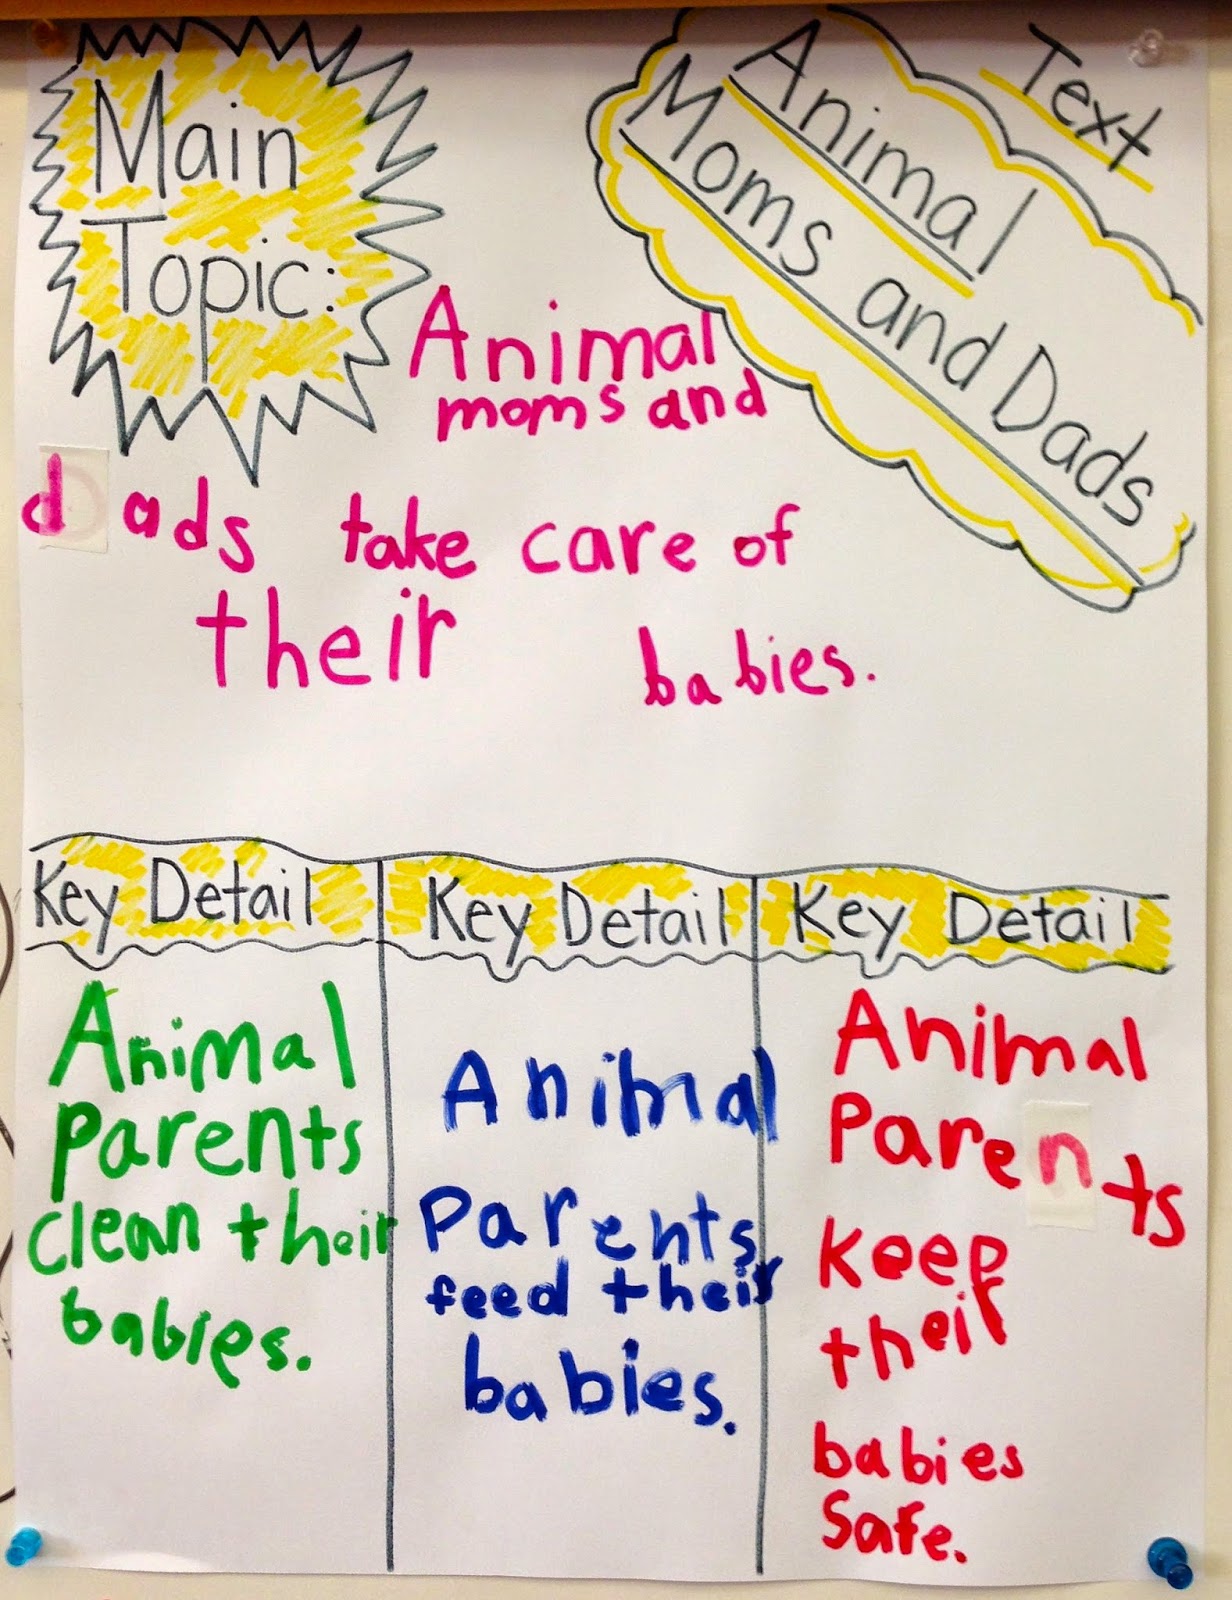 Main
Topic:
Text
Animal
Moms and Dads
Animal
moms and
dads take care of
their babies.
Key Detail
Animal
Parents
clean their
babies.
Key Detail
Animal
Parents
feed their
babies.
Key Detail
Animal
Parents
keep
their
babies
safe.